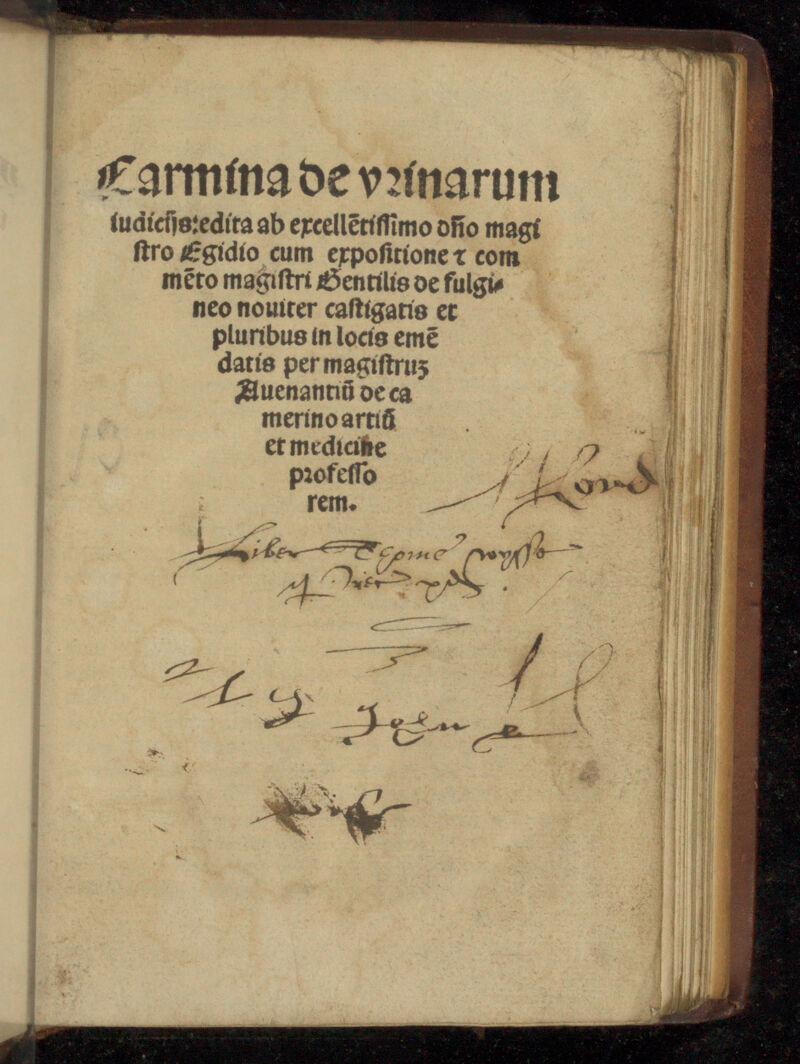 Carmina de vꝛinarum
iudicijs: edita ab excellẽtiſſimo dño magi
ſtro Egidio cum expoſitione ⁊ com
mẽto magiſtri Gentilis de fulgi⸗
neo nouiter caſtigatis et
pluribus in locis emẽ
datis per magiſtruꝫ
Auenantiũ de ca
merino artiũ
et medicine
pꝛofeſſo
rem.
Liber